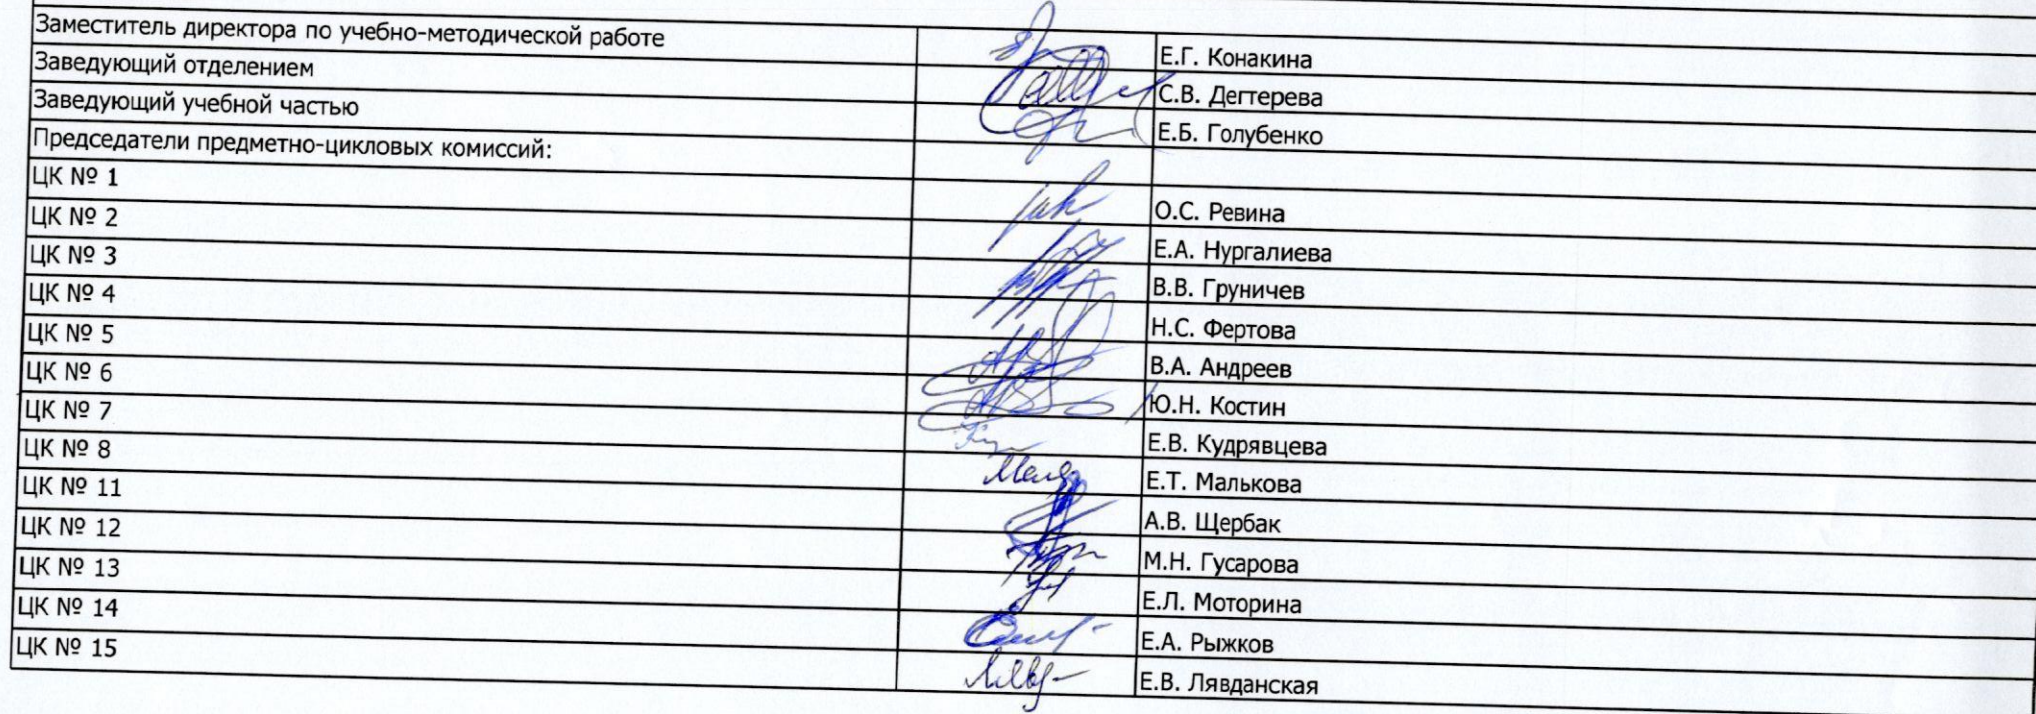 Заместитель директора по учебно-методической работе Е.Г. Конакина
Заведующий отделением С.В. Дегтерева
Заведующий учебной частью Е.Б. Голубенко
Председатели предметно-цикловых комиссий:
ЦК № 1 О.С. Ревина
ЦК № 2 Е.А. Нургалиева
ЦК № 3 В.В. Груничев
ЦК № 4 Н.С. Фертова
ЦК № 5 В.А. Андреев
ЦК № 6 Ю.Н. Костин
ЦК № 7 Е.В. Кудрявцева
ЦК № 8 Е.Т. Малькова
ЦК № 11 А.В. Щербак
ЦК № 12 М.Н. Гусарова
ЦК № 13 Е.Л. Моторина
ЦК № 14 Е.А. Рыжков
ЦК № 15 Е.В. Лявданская